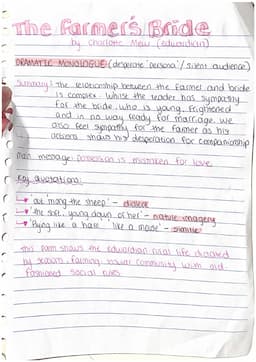 The Farmer's Bride
by Charlotte Mew (edwardian)
DRAMATIC MONOLOGUE (desperate 'persona' / silent audience)
Summary: The relationship between the farmer and bride
is complex. Whilst the reader has sympathy
for the bride, who is young, frightened
and in no way ready for marriage. we
also feel sympathy for the farmer as his
actions shows his desperation for companionship
main message: possession is mistaken for love.
Key quotations:
'out 'mong the sheep' - dialect
'the soft, young down of her' - nature imagery
'flying like a hare' 'like a mouse' - simile
this poem shows the edwardian rural life dictated
by seasons, farming, insular community with old
fashioned social rules.